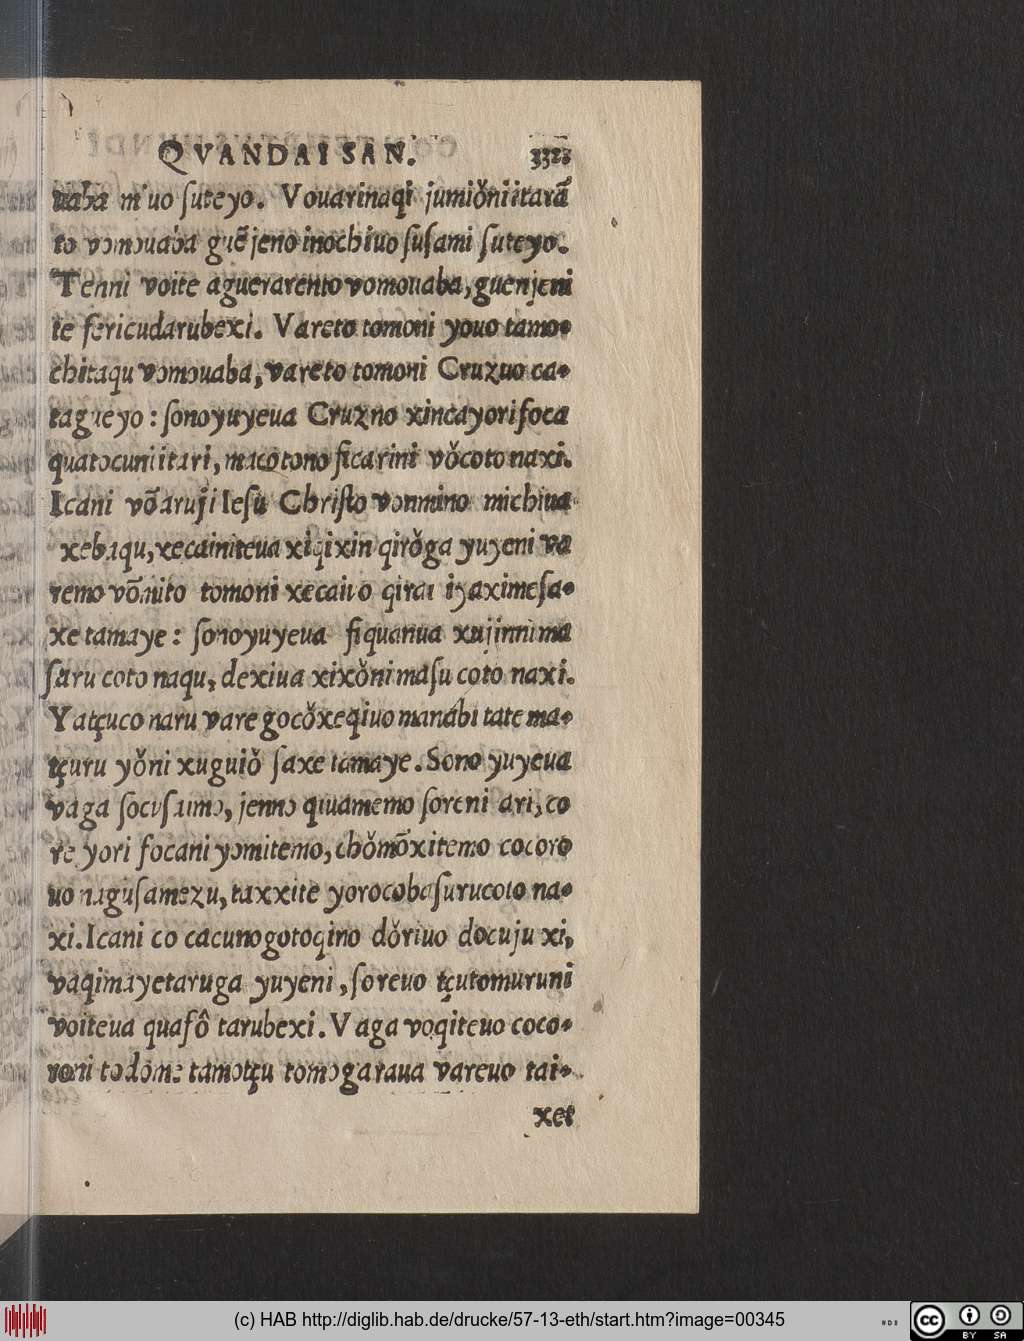 QVANDAI SAN.
uaba mi uo ſuteyo. Vouarinaqi jumiǒni itarã
to vomouaba guẽjeno inochiuo ſuſami ſuteyo.
Tenni voite aguerarento vomouaba, guenjeni
te fericudarubexi. Vareto tomoni youo tamo-
chitaqu vomouaba, vareto tomoni Cruzuo ca-
tagueyo: ſonoyuyeua Cruzno xincayori foca
quatocuni itari, macotono ficarini vǒcoto naxi.
Icani võaruji Ieſu Chriſto vonmino michiua
xebaqu, xecainiteua xiqixin qirǒga yuyeni va
remo võmito tomoni xecaiuo qirai izaximeſa-
xe tamaye: ſonoyuyeua fiquanua xujinni ma
ſaru coto naqu, dexiua xixǒni maſu coto naxi.
Yatçuco naru vare gocǒxeqiuo manabi tate ma-
tçuru yǒni xuguiǒ ſaxe tamaye. Sono yuyeua
vaga ſocuſaimo, jenno quiamemo ſoreni ari, co
re yori focani yomitemo, chǒmõxitemo cocoro
uo naguſamezu, taxxite yorocobaſurucoto na-
xi. Icani co cacuno gotoqino dǒriuo docuju xi,
vaqimayetaruga yuyeni, ſoreuo tçutomuruni
voiteua quafô tarubexi. Vaga voqiteuo coco-
roni todome tamotçu tomogaraua vareuo tai-
xet
(c) HAB http://diglib.hab.de/drucke/57-13-eth/start.htm?image=00345
cc
BY SA